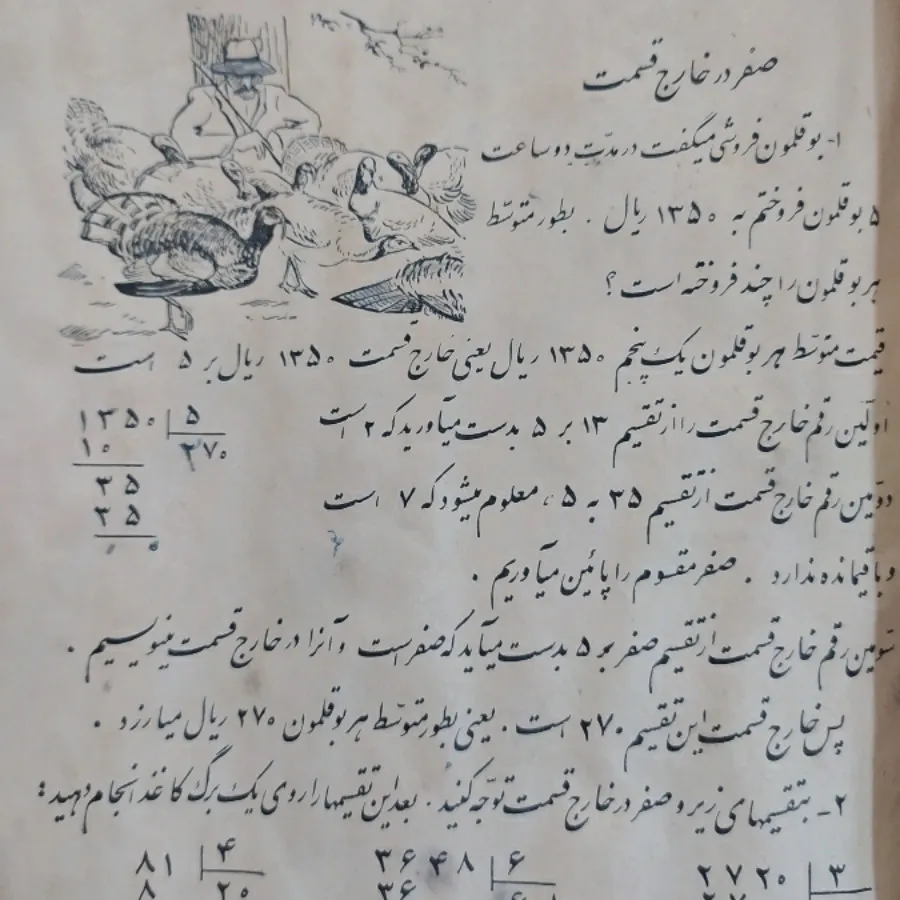 صفر در خارج قسمت
۱- بوقلمون فروشی میگفت در مدّت دو ساعت
۵ بوقلمون فروختم به ۱۳۵۰ ریال . بطور متوسّط
هر بوقلمون را چند فروخته است ؟
قیمت متوسّط هر بوقلمون یک پنجم ۱۳۵۰ ریال یعنی خارج قسمت ۱۳۵۰ ریال بر ۵ است
اوّلین رقم خارج قسمت را از تقسیم ۱۳ بر ۵ بدست میآورید که ۲ است
۱۳۵۰ ۵
۱۰ ۲۷۰
دوّمین رقم خارج قسمت از تقسیم ۳۵ به ۵ ، معلوم میشود که ۷ است
۳۵
۳۵
۰ ۰
و باقیمانده ندارد . صفر مقسوم را پائین میآوریم .
سوّمین رقم خارج قسمت از تقسیم صفر بر ۵ بدست میآید که صفر است و آنرا در خارج قسمت مینویسیم .
پس خارج قسمت این تقسیم ۲۷۰ است . یعنی بطور متوسّط هر بوقلمون ۲۷۰ ریال میارزد .
۲- بتقسیمهای زیر و صفر در خارج قسمت توجّه کنید . بعد این تقسیمها را روی یک برگ کاغذ انجام دهید :
۲۷۲۰ ۳ ۳۶۴۸ ۶ ۸۱ ۴
۲۷ ۳۶ ۸ ۲۰